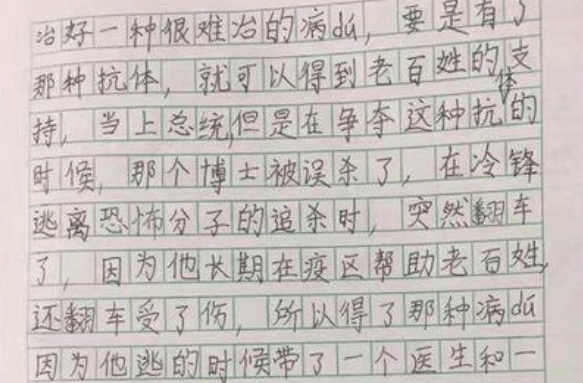 治好一种很难治的病dú，要是有了
那种抗体，就可以得到老百姓的支
持，当上总统，但是在争夺这种抗体的
时候，那个博士被误杀了，在冷锋
逃离恐怖分子的追杀时，突然翻车
了，因为他长期在疫区帮助老百姓，
还翻车受了伤，所以得了那种病dú
因为他逃的时候带了一个医生和一